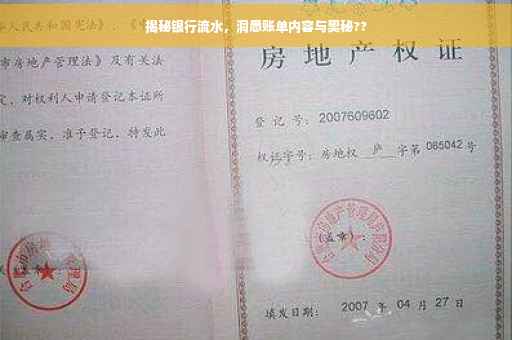 揭秘银行流水，洞悉账单内容与奥秘??
人民共和国宪法》、
市房地产管理法》及有关
定，对权利人申请登记本证所
审查属实，准予登记，特发此
房地产权证
登记号：2007609602
权证字号：房地权 庐 字第 065042 号
(盖章)：
填发日期：2007 年 04 月 27 日